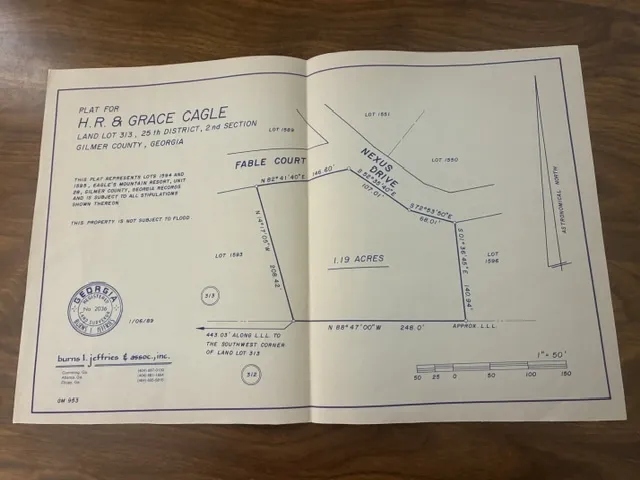 PLAT FOR
H.R. & GRACE CAGLE
LAND LOT 313, 25th DISTRICT, 2nd SECTION
GILMER COUNTY, GEORGIA
THIS PLAT REPRESENTS LOTS 1594 AND
1595, EAGLE'S MOUNTAIN RESORT, UNIT
28, GILMER COUNTY, GEORGIA RECORDS
AND IS SUBJECT TO ALL STIPULATIONS
SHOWN THEREON
THIS PROPERTY IS NOT SUBJECT TO FLOOD
LOT 1551
LOT 1550
FABLE COURT
NEXUS
DRIVE
N 82°41'40"E
146.60'
107.01'
68.01'
N 14°17'05"W
208.42'
140.94'
LOT 1593
1.19 ACRES
LOT
1596
ASTRONOMICAL NORTH
GEORGIA
REGISTERED
No. 2036
LAND SURVEYOR
1/06/89
313
443.03' ALONG L.L.L. TO
THE SOUTHWEST CORNER
OF LAND LOT 313
N 88°47'00"W 248.0'
APPROX. L.L.L.
312
burns l. jeffries & assoc., inc.
1"=50'
50 25 0 50 100 150